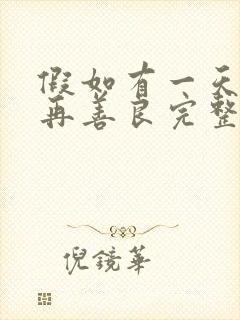 假如有一天
再善良完整
倪鏡華